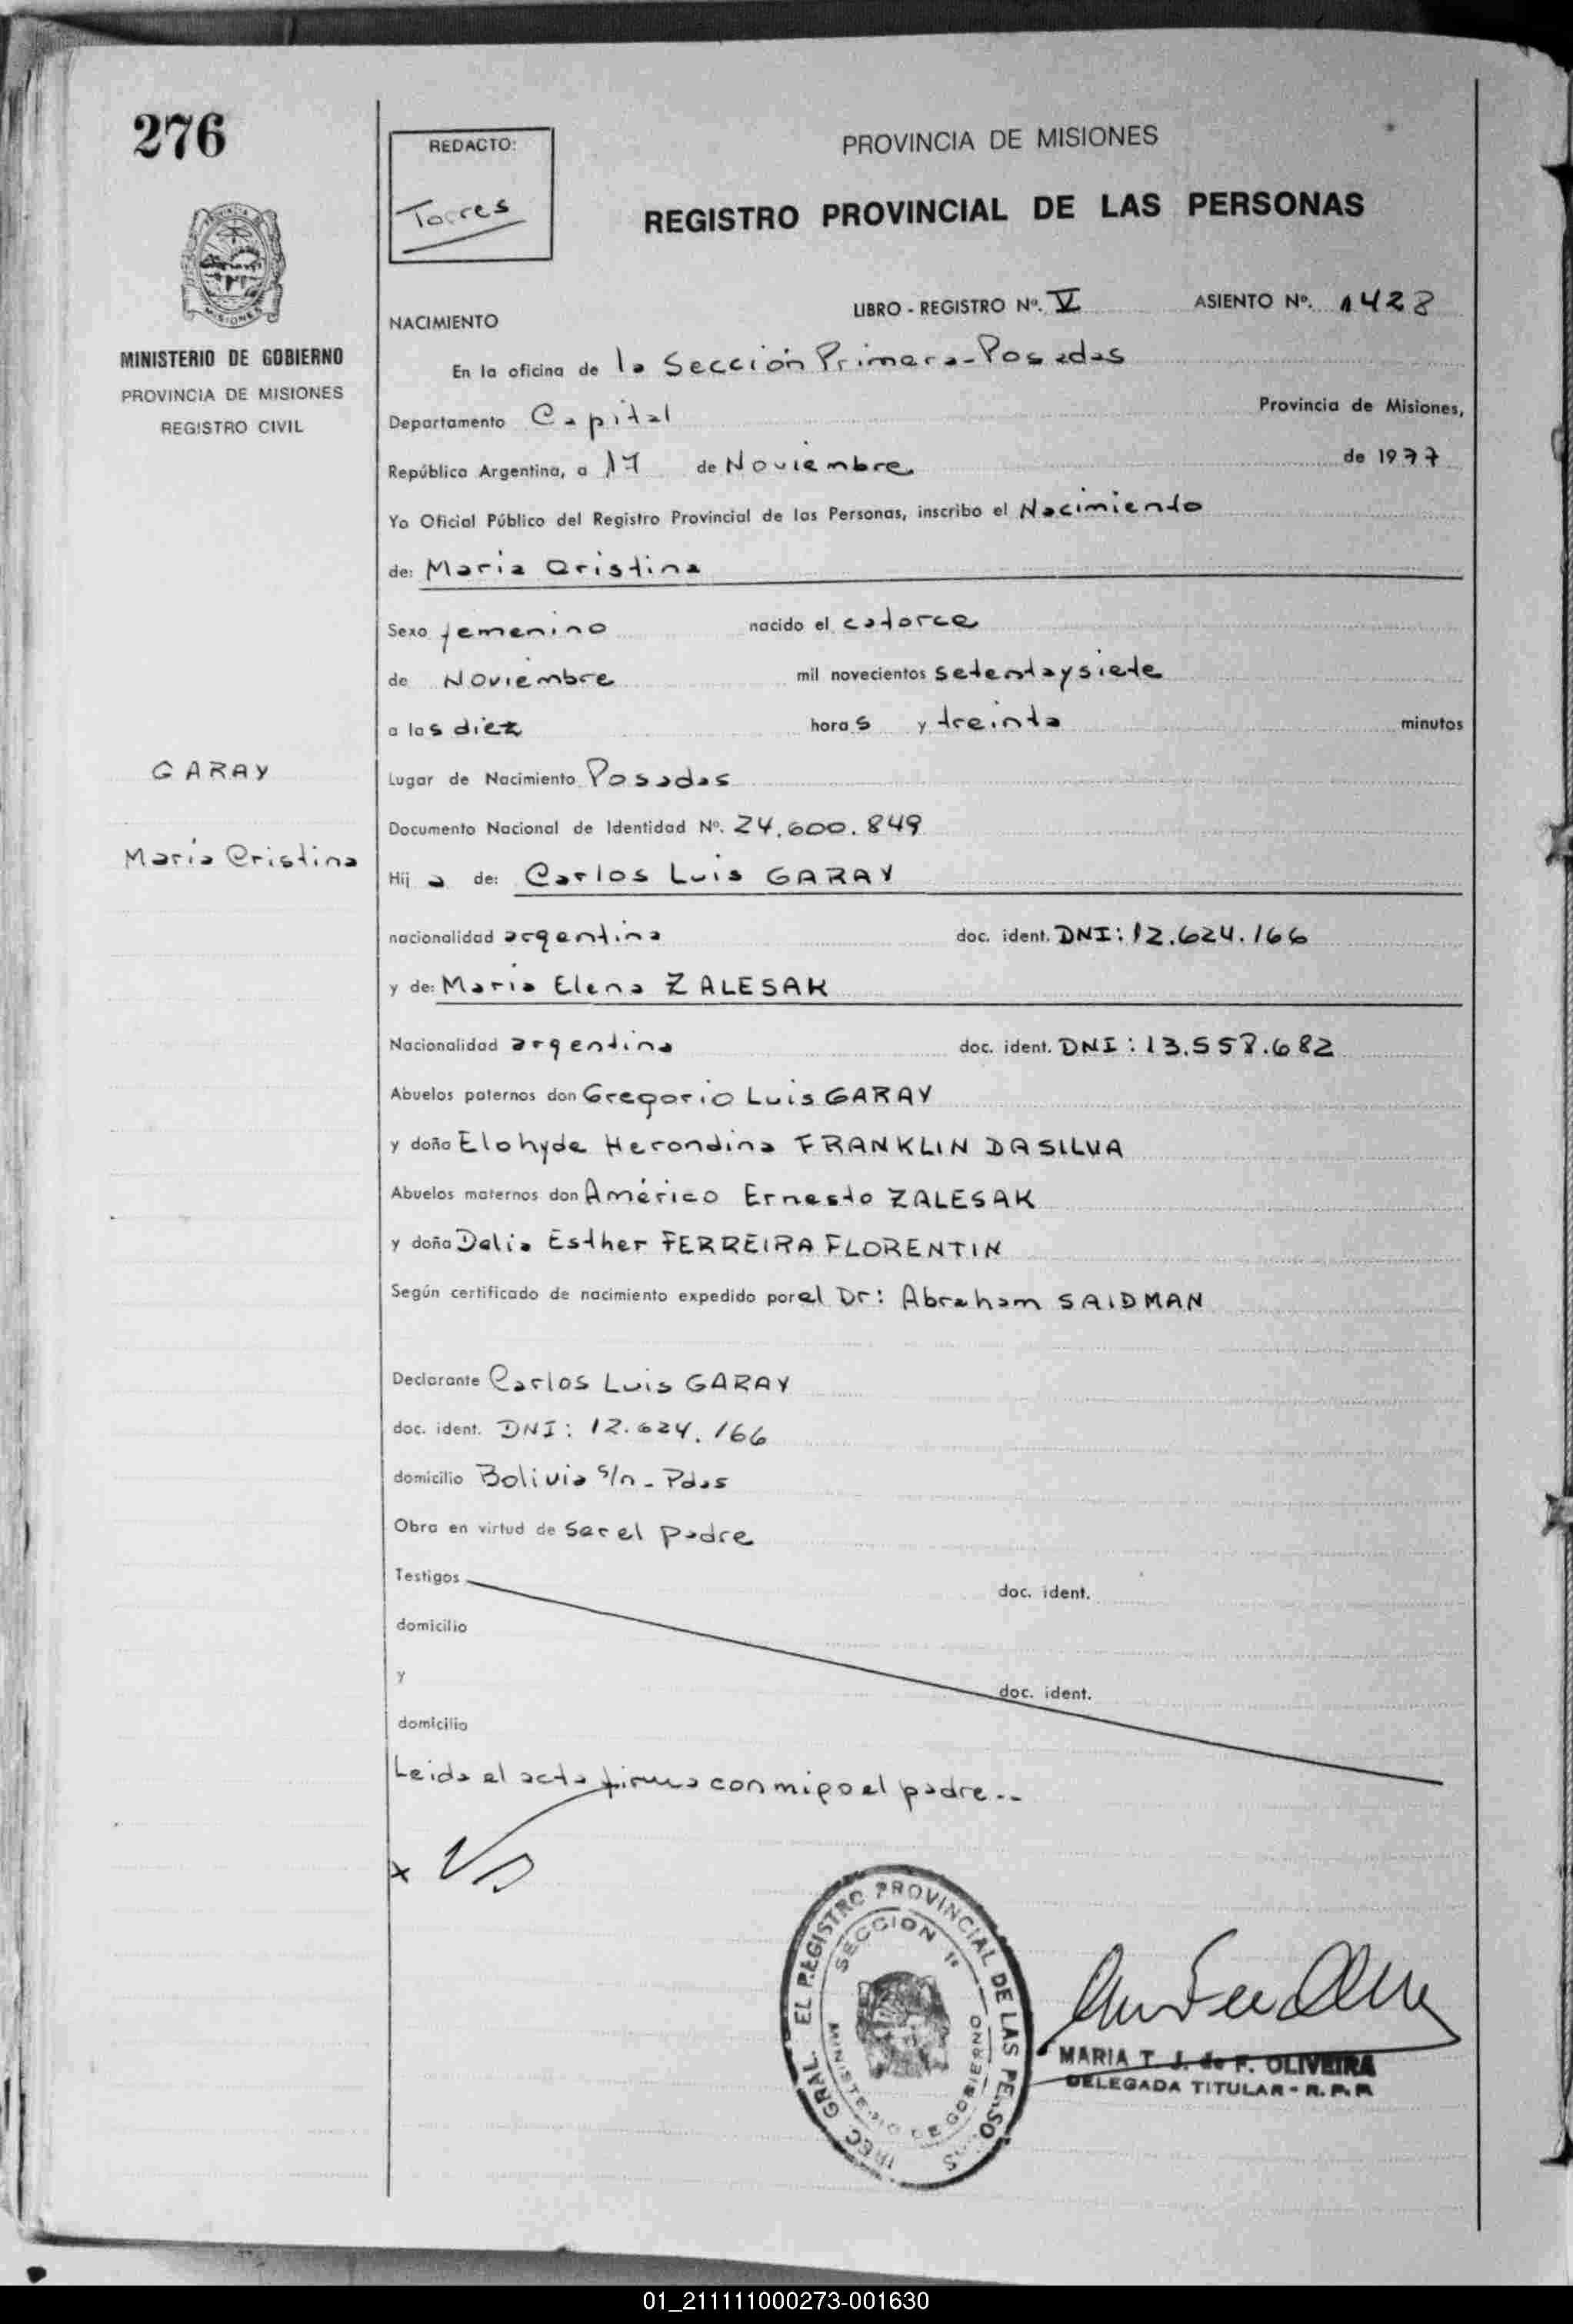 276
REDACTO:
Torres
PROVINCIA DE MISIONES
REGISTRO PROVINCIAL DE LAS PERSONAS
MISIONES
MINISTERIO DE GOBIERNO
PROVINCIA DE MISIONES
REGISTRO CIVIL
LIBRO - REGISTRO Nº. V ASIENTO Nº. 1428
NACIMIENTO
En la oficina de la Sección Primera-Posadas
Departamento Capital Provincia de Misiones,
República Argentina, a 17 de Noviembre de 1977
Yo Oficial Público del Registro Provincial de las Personas, inscribo el Nacimiento
de: Maria Cristina
Sexo femenino nacido el catorce
de Noviembre mil novecientos setentaysiete
a las diez horas y treinta minutos
GARAY
Lugar de Nacimiento Posadas
Documento Nacional de Identidad Nº. 24.600.849
María Cristina
Hij a de: Carlos Luis GARAY
nacionalidad argentina doc. ident. DNI: 12.624.166
y de: Maria Elena ZALESAK
Nacionalidad argentina doc. ident. DNI: 13.558.682
Abuelos paternos don Gregorio Luis GARAY
y doña Elohyde Herondina FRANKLIN DASILVA
Abuelos maternos don Américo Ernesto ZALESAK
y doña Delia Esther FERREIRA FLORENTIN
Según certificado de nacimiento expedido por el Dr: Abraham SAIDMAN
Declarante Carlos Luis GARAY
doc. ident. DNI: 12.624.166
domicilio Bolivia s/n - Pdas
Obra en virtud de ser el padre
Testigos doc. ident.
domicilio
y doc. ident.
domicilio
Leida el acta firma conmigo el padre..
x
IREC. GRAL. EL REGISTRO PROVINCIAL DE LAS PERSO AS
SECCION 1ª
MINISTERIO DE GOBIERNO
MARIA T. J. de F. OLIVEIRA
DELEGADA TITULAR - R. P. P.
01_211111000273-001630